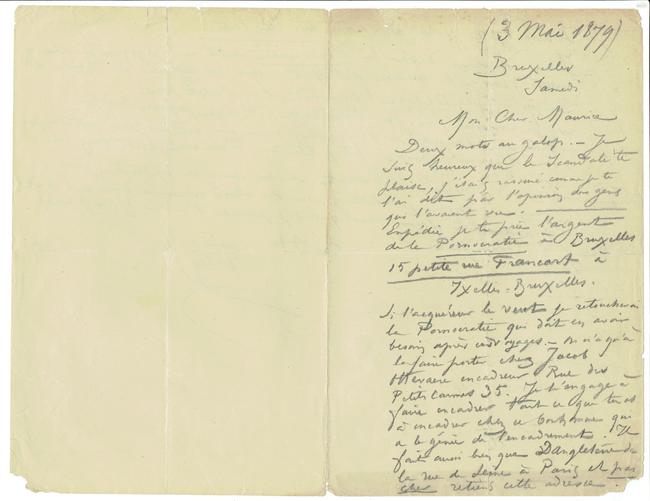 (3 Mai 1879)
Bruxelles
Samedi
Mon Cher Maurice
Deux mots au galop. – Je
suis heureux que le Scandale te
plaise, j'étais rassuré comme je te
l'ai dit par l'opinion des gens
qui l'avaient vu.
Expédie je te prie l'argent
de la Pornocratie à Bruxelles
15 petite rue Francart à
Ixelles-Bruxelles.
Si l'acquéreur le veut je retoucherai
la Pornocratie qui doit en avoir
besoin après ces voyages. – On n'a qu'à
la faire porter chez Jacob
encadreur Rue des
Petits Carmes 35. Je t'engage à
faire encadrer tout ce que tu as
à encadrer chez ce bonhomme qui
a le génie de l'encadrement. Il
fait aussi bien que Dangleterre de
la rue de Seine à Paris et pas
cher retiens cette adresse.